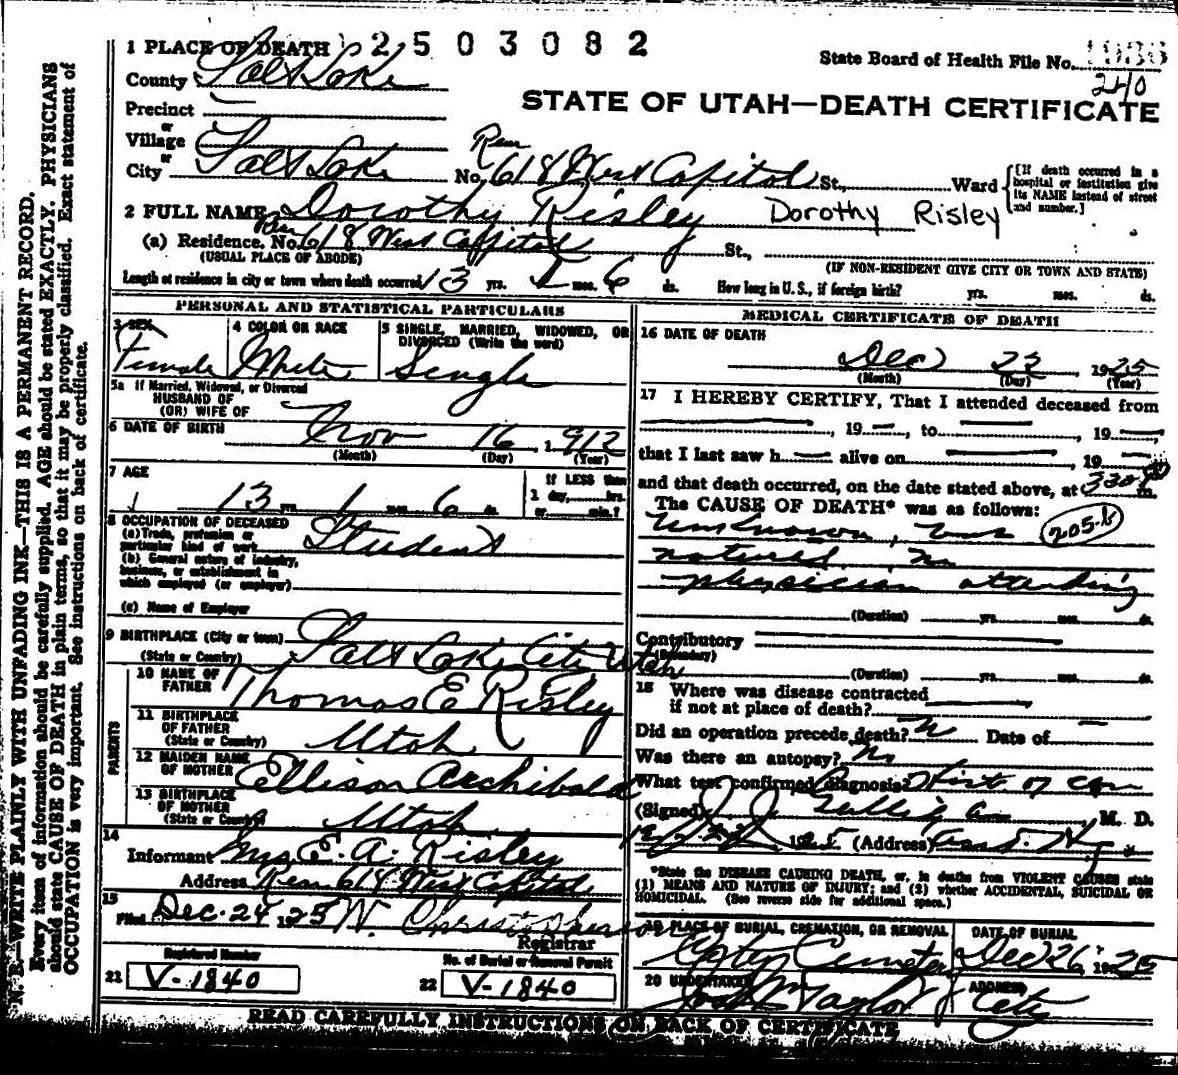 1 PLACE OF DEATH 2503082
State Board of Health File No. 1986
240
County Salt Lake
STATE OF UTAH—DEATH CERTIFICATE
Precinct
or
Village
or
City Salt Lake No. Rear 618 West Capitol St., Ward
[If death occurred in a hospital or institution give its NAME instead of street and number.]
2 FULL NAME Dorothy Risley Dorothy Risley
(a) Residence. No. Rear 618 West Capitol St.,
(USUAL PLACE OF ABODE) (IF NON-RESIDENT GIVE CITY OR TOWN AND STATE)
Length of residence in city or town where death occurred 13 yrs. 1 mos. 6 ds. How long in U. S., if foreign birth? yrs. mos. ds.
PERSONAL AND STATISTICAL PARTICULARS
3 SEX 4 COLOR OR RACE 5 SINGLE, MARRIED, WIDOWED, OR DIVORCED (Write the word)
Female White Single
5a If Married, Widowed, or Divorced
HUSBAND OF
(OR) WIFE OF
6 DATE OF BIRTH Nov 16 1912
(Month) (Day) (Year)
7 AGE If LESS than
13 yrs. 1 mos. 6 ds. 1 day, hrs.
or min.?
8 OCCUPATION OF DECEASED Student
(a) Trade, profession or
particular kind of work
(b) General nature of industry,
business, or establishment in
which employed (or employer)
(c) Name of Employer
9 BIRTHPLACE (City or town) Salt Lake City Utah
(State or Country)
PARENTS
10 NAME OF FATHER Thomas E Risley
11 BIRTHPLACE OF FATHER Utah
(State or Country)
12 MAIDEN NAME OF MOTHER Ellison Archibald
13 BIRTHPLACE OF MOTHER Utah
(State or Country)
14
Informant Mrs E. A. Risley
Address Rear 618 West Capitol
15
Filed Dec. 24, 1925 W.
Registrar
Registered Number No. of Burial or Removal Permit
21 V-1840 22 V-1840
MEDICAL CERTIFICATE OF DEATH
16 DATE OF DEATH
Dec 22 1925
(Month) (Day) (Year)
17 I HEREBY CERTIFY, That I attended deceased from
, 19 , to , 19 ,
that I last saw h alive on , 19
and that death occurred, on the date stated above, at 330 m.
The CAUSE OF DEATH* was as follows:
Unknown, was 205-b
natural, no
physician attending
(Duration) yrs. mos. ds.
Contributory
(Secondary)
(Duration) yrs. mos. ds.
18 Where was disease contracted
if not at place of death?
Did an operation precede death? no Date of
Was there an autopsy? no
What test confirmed diagnosis? Hist of
(Signed) M. D.
1925 (Address)
*State the DISEASE CAUSING DEATH, or, in deaths from VIOLENT CAUSES state
(1) MEANS AND NATURE OF INJURY; and (2) whether ACCIDENTAL, SUICIDAL OR
HOMICIDAL. (See reverse side for additional space.)
19 PLACE OF BURIAL, CREMATION, OR REMOVAL DATE OF BURIAL
City Cemetery Dec 26, 1925
20 UNDERTAKER ADDRESS
Taylor City
READ CAREFULLY INSTRUCTIONS ON BACK OF CERTIFICATE
N. B.—WRITE PLAINLY WITH UNFADING INK—THIS IS A PERMANENT RECORD.
Every item of information should be carefully supplied. AGE should be stated EXACTLY. PHYSICIANS
should state CAUSE OF DEATH in plain terms, so that it may be properly classified. Exact statement of
OCCUPATION is very important. See instructions on back of certificate.